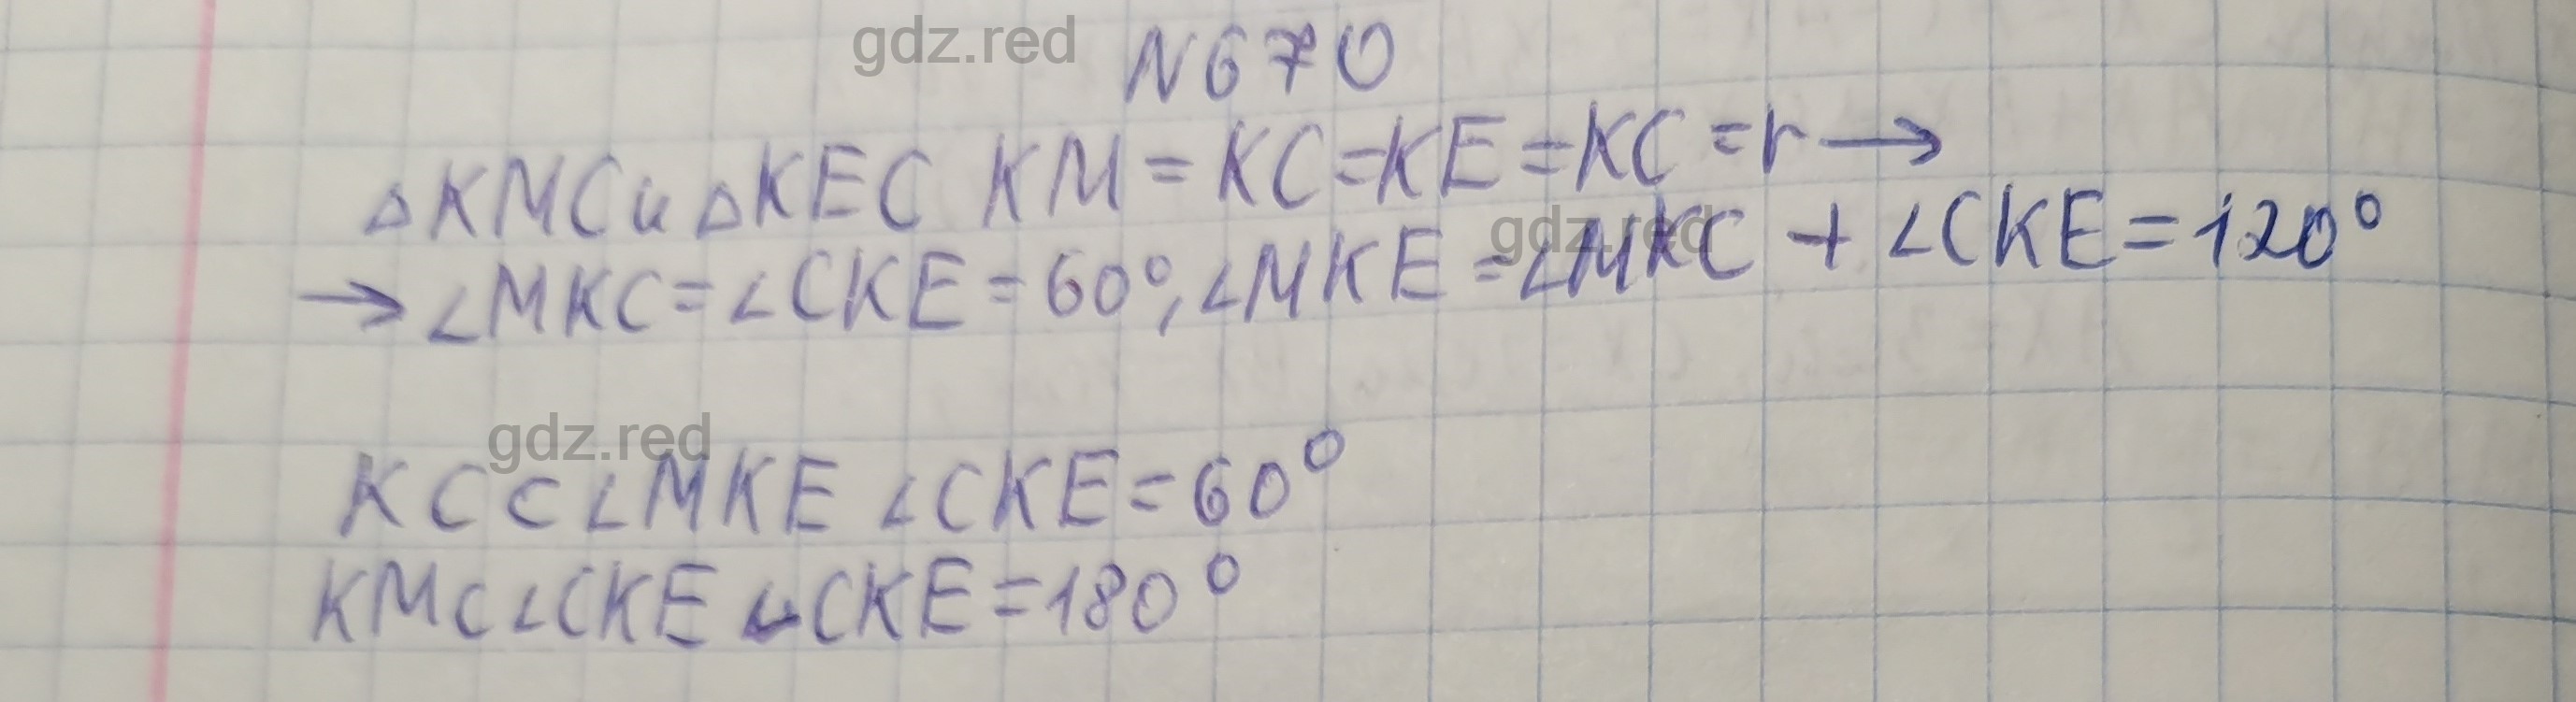 gdz.red
N670
△KMC и △KEC KM = KC = KE = KC = r →
gdz.red
→ ∠MKC = ∠CKE = 60°, ∠MKE = ∠MKC + ∠CKE = 120°
gdz.red
KC ⊂ ∠MKE ∠CKE = 60°
KM ⊂ ∠CKE ∠CKE = 180°